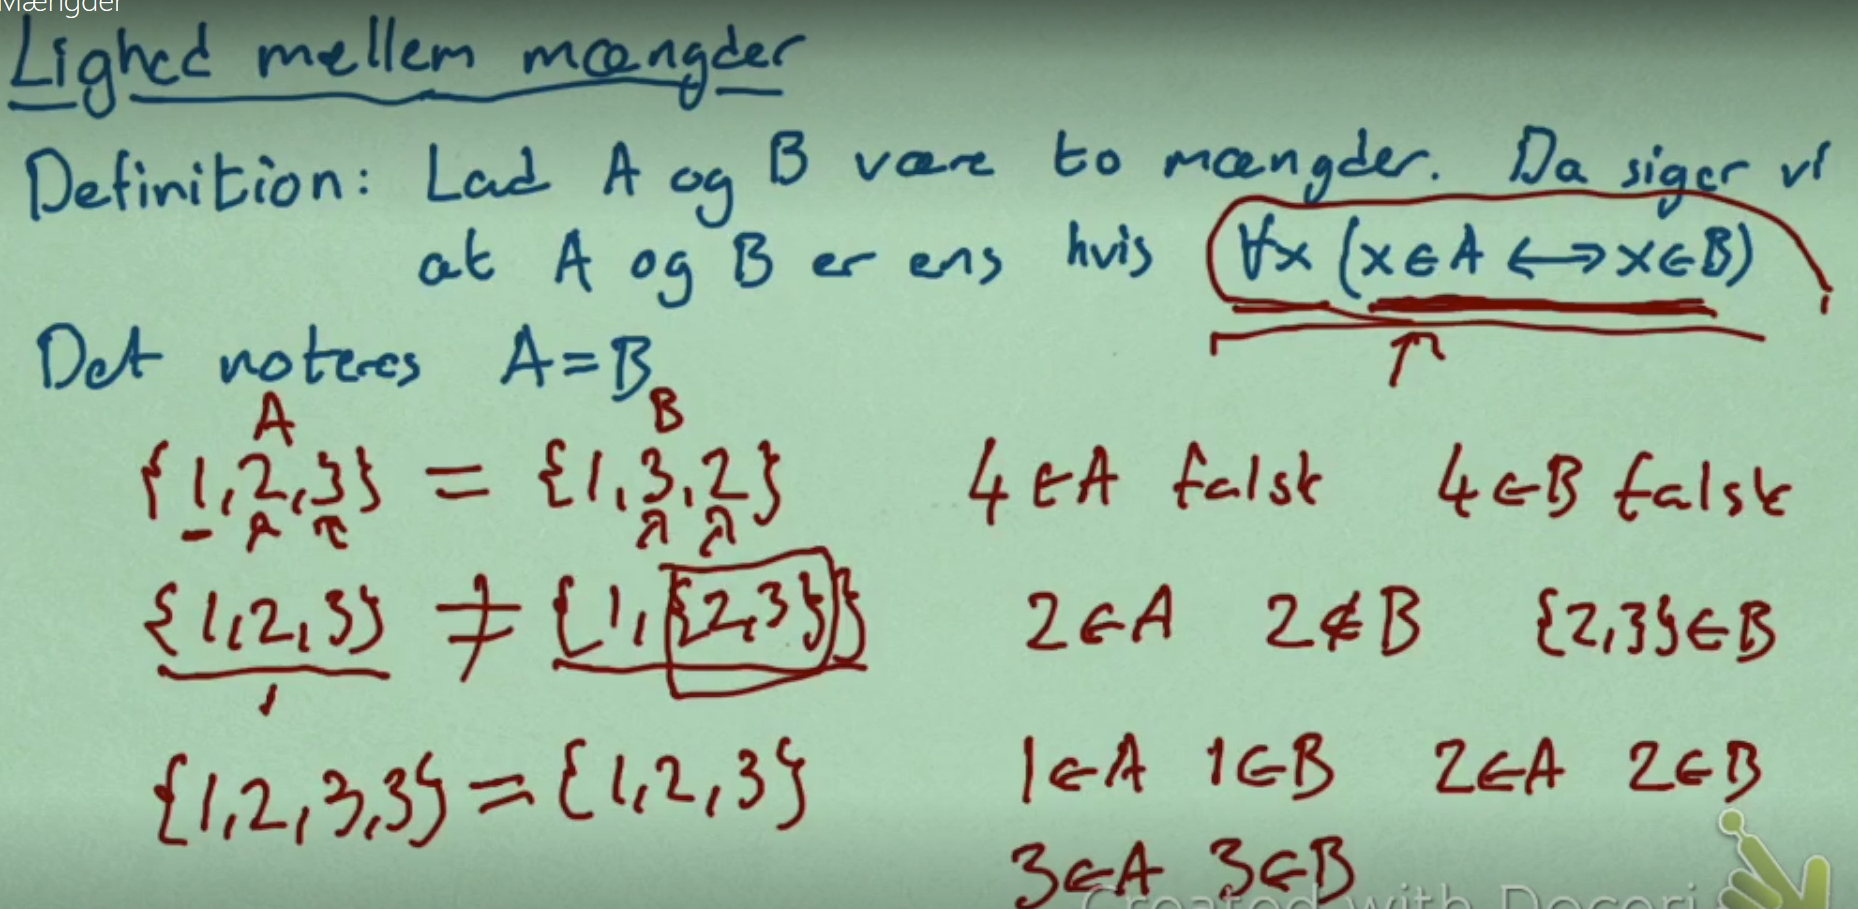 Mængder
Lighed mellem mængder
Definition: Lad A og B være to mængder. Da siger vi
at A og B er ens hvis ∀x (x∈A ↔ x∈B)
Det noteres A=B
A B
{1,2,3} = {1,3,2} 4∈A falsk 4∈B falsk
{1,2,3} ≠ {1,{2,3}} 2∈A 2∉B {2,3}∈B
{1,2,3,3} = {1,2,3} 1∈A 1∈B 2∈A 2∈B
3∈A 3∈B
Created with Doceri